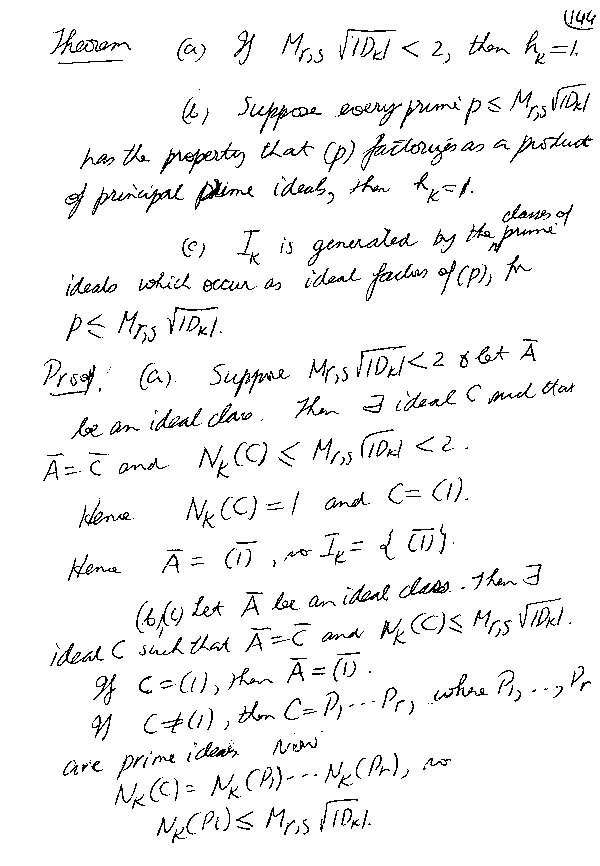 144
Theorem (a) If M_{r,s} √|D_K| < 2, then h_K = 1.
(b) Suppose every prime p ≤ M_{r,s} √|D_K|
has the property that (p) factorizes as a product
of principal prime ideals, then h_K = 1.
(c) I_K is generated by the classes of prime
ideals which occur as ideal factors of (p), for
p ≤ M_{r,s} √|D_K|.
Proof: (a). Suppose M_{r,s} √|D_K| < 2 & let Ā
be an ideal class. Then ∃ ideal C such that
Ā = C̄ and N_K(C) ≤ M_{r,s} √|D_K| < 2.
Hence N_K(C) = 1 and C = (1).
Hence Ā = (1)̄, so I_K = {(1)̄}.
(b),(c) Let Ā be an ideal class. Then ∃
ideal C such that Ā = C̄ and N_K(C) ≤ M_{r,s} √|D_K|.
If C = (1), then Ā = (1)̄.
If C ≠ (1), then C = P_1 ... P_r, where P_1, ..., P_r
are prime ideals. Now
N_K(C) = N_K(P_1) ... N_K(P_r), so
N_K(P_i) ≤ M_{r,s} √|D_K|.